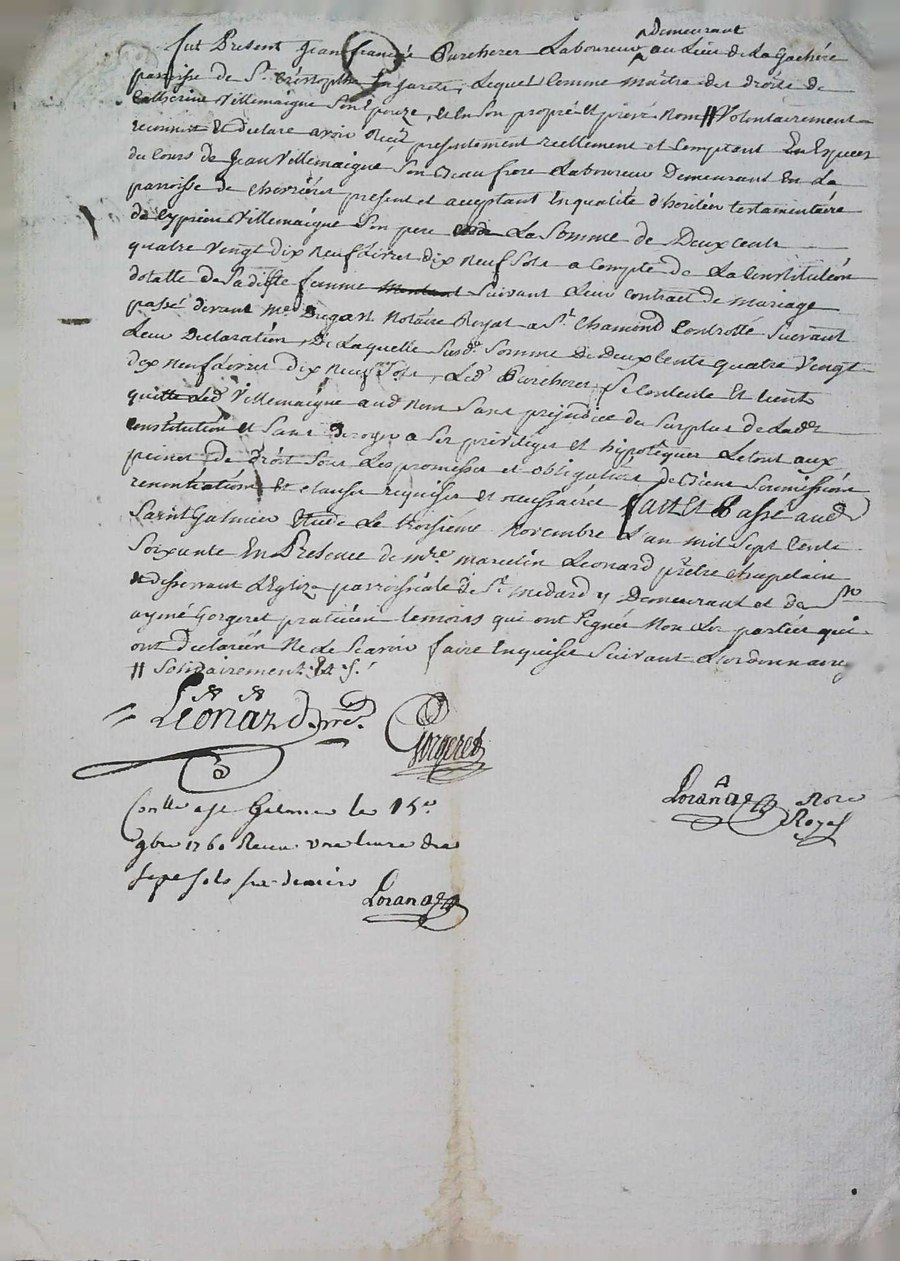 Demeurant
fut Present Jean françois Purcherer Laboureur au Lieu de La Gachere
parroisse de St. Cristophle En Jarets, Lequel Comme maitre des droits de
Catherine Villemaigne Son Epouze, et En Son propre et privé Nom // Volontairement
reconnu et declare avoir Reçu presentement reellement et Comptant En Especes
du Cours de Jean Villemaigne Son Beau frere Laboureur Demeurant En La
parroisse de present et acceptant En qualité d'heritier testamentaire
de Cyprien Villemaigne Son pere La Somme de Deux Cents
quatre Vingt Dix Neuf Livres Dix Neuf Sols a Compte de La Constitution
dotalle de Laditte femme Suivant Leur Contract de mariage
passé devant Me Dugart Notaire Royal a St. Chamond Controllé Suivant
Leur Declaration, De Laquelle Susde. Somme De Deux Cents quatre Vingt
dix neuf Livres dix Neuf Sols, Led. Purcherer Se Contente Et tient
quitte Led. Villemaigne aud Nom Sans prejudice du Surplus de Lade
Constitution et Sans Deroger a Ses privileges et hypoteques Le tout aux
peines de Droit Sous Les promesses et obligation de Biens Soumissions
renontiations et clauses requises et necessaires fait Et Passé aud
Saint Galmier Etude Le troisieme Novembre L'an mil Sept Cents
Soixante En Presence de mre. marcelin Leonard prêtre chapelain
et desservant L'Eglize parroissiale de St. medard y Demeurant et de Sr
aymé Gorgeret praticien temoins qui ont Signé Non Les parties qui
ont declaré Ne Le Scavoir faire Enquises Suivant L'ordonnance
// Solidairement
Léonard
Gorgeret
Loranãz Nore
Royal
Conllé a St Galmier le 15e
9bre 1760 Receu une livre
sept sols six deniers
Loranaz